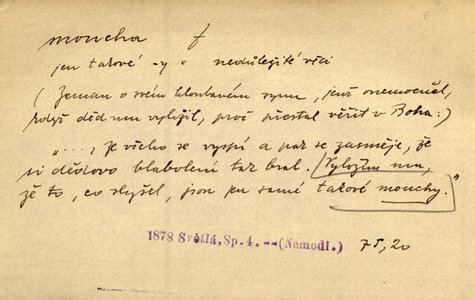 moucha f
jen takové -y = nedůležité věci
(Zeman o svém hloubavém synu, jenž onemocněl,
když děd mu vyložil, proč přestal věřit v Boha:)
"..., že všeho se vyspí a pak se zasměje, že
si dědovo blabolení tak bral. Vyložím mu,
že to, co slyšel, jsou jen samé takové mouchy."
1878 Světlá, Sp. 4. -- (Nemodl.) 75, 20